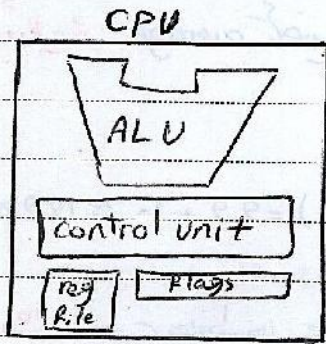 CPU
ALU
control unit
reg
file
flags